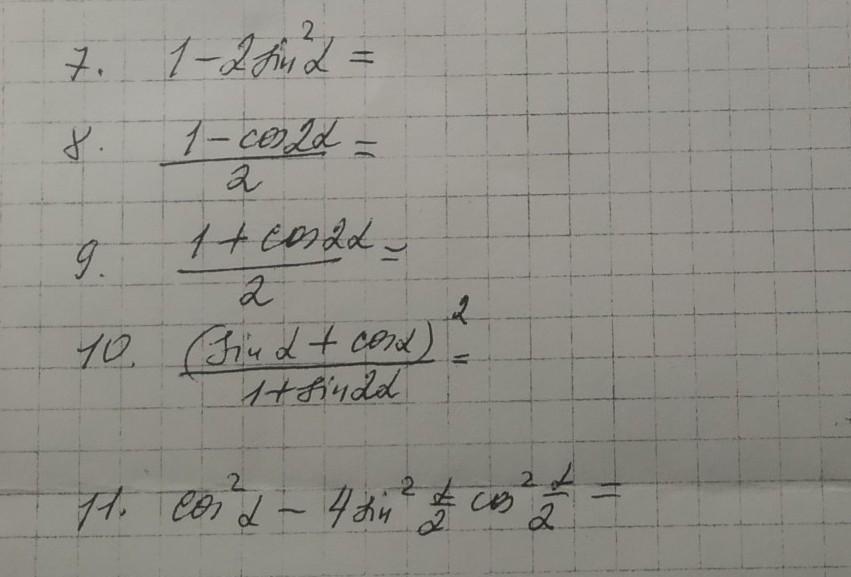 7. 1 - 2 sin²α =
8. (1 - cos2α)/2 =
9. (1 + cos2α)/2 =
10. (sin α + cosα)²/(1 + sin2α) =
11. cos²α - 4 sin² α/2 cos² α/2 =